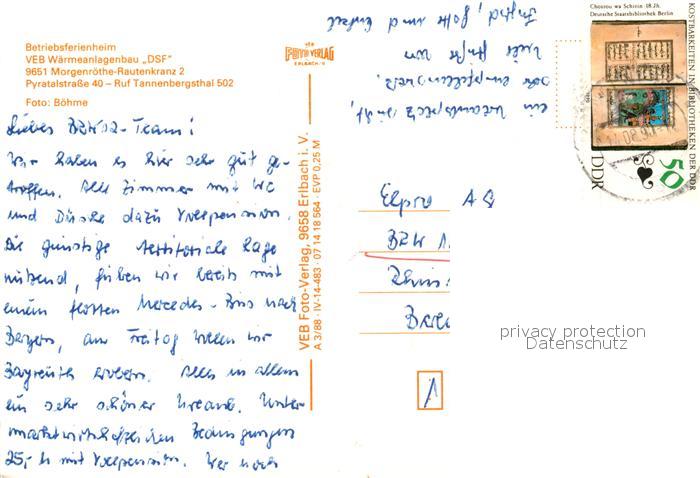 Betriebsferienheim
VEB Wärmeanlagenbau „DSF"
9651 Morgenröthe-Rautenkranz 2
Pyratalstraße 40 – Ruf Tannenbergsthal 502
Foto: Böhme
Liebes BZW02-Team!
Wir haben es hier sehr gut ge-
troffen. Alle Zimmer mit WC
und Dusche dazu Vollpension.
Die günstige territoriale Lage
nutzend, fuhren wir bereits mit
einem flotten Mercedes-Bus nach
Bayern, am Freitag wollen wir
Bayreuth erobern. Alles in allem
ein sehr schöner Urlaub. Unter
marktwirtschaftlichen Bedingungen
25,- M mit Vollpension. Wer noch
ein Urlaubsplatz sucht,
sehr empfehlenswert.
Viele Grüße von
Ingrid, Lotte und Enkel
FOTO VERLAG
ERLBACH/V.
VEB Foto-Verlag, 9658 Erlbach i. V.
A 3/88 · IV-14-483 · 07 14 18 564 · EVP 0,25 M
Elpro AG
BZW
Rhins
Berl
A
Chosrou wa Schirin · 18. Jh.
Deutsche Staatsbibliothek Berlin
KOSTBARKEITEN IN BIBLIOTHEKEN DER DDR
DDR
50
privacy protection
Datenschutz